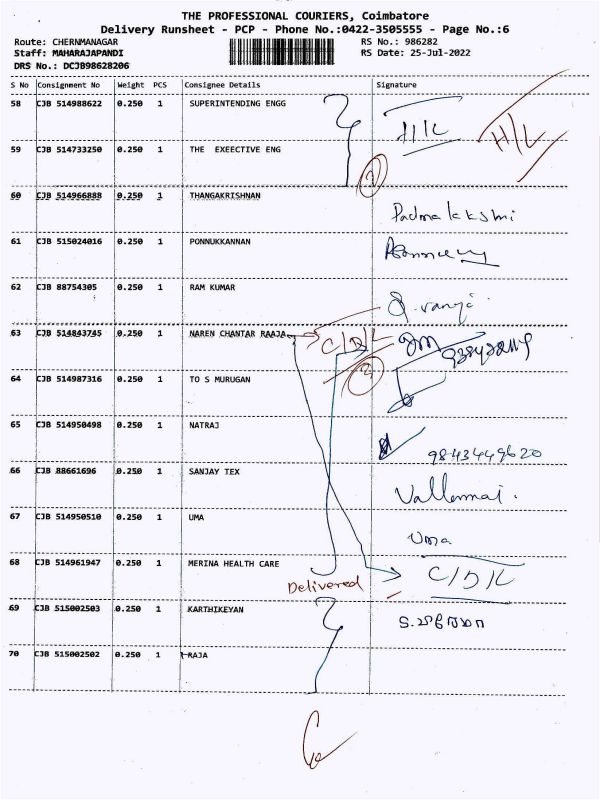 THE PROFESSIONAL COURIERS, Coimbatore
Delivery Runsheet - PCP - Phone No.:0422-3505555 - Page No.:6
Route: CHERNMANAGAR RS No.: 986282
Staff: MAHARAJAPANDI RS Date: 25-Jul-2022
DRS No.: DCJB98628206
S No Consignment No Weight PCS Consignee Details Signature
58 CJB 514988622 0.250 1 SUPERINTENDING ENGG H/L H/L
59 CJB 514733250 0.250 1 THE EXEECTIVE ENG
60 CJB 514966888 0.250 1 THANGAKRISHNAN Padma lakshmi
61 CJB 515024016 0.250 1 PONNUKKANNAN
62 CJB 88754305 0.250 1 RAM KUMAR
63 CJB 514843745 0.250 1 NAREN CHANTAR RAAJA C/D/L
64 CJB 514987316 0.250 1 TO S MURUGAN
65 CJB 514950498 0.250 1 NATRAJ 9843449620
66 CJB 88661696 0.250 1 SANJAY TEX
67 CJB 514950510 0.250 1 UMA Uma
68 CJB 514961947 0.250 1 MERINA HEALTH CARE C/D/L
Delivered
69 CJB 515002503 0.250 1 KARTHIKEYAN
70 CJB 515002502 0.250 1 RAJA